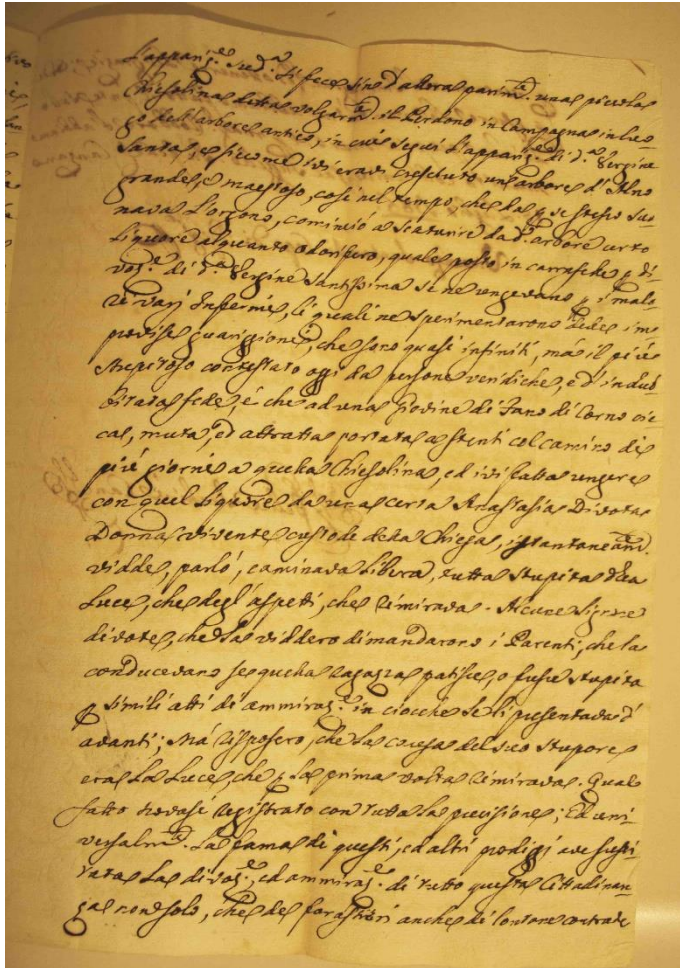 L'appariz.ne sud.a Si fece sino d'allora parim.te una piccola
Chiesolina detta volgarm.te il Perdono in Campagna in luo-
go dell'arbore antico, in cui seguì l'appariz.ne di d.a Vergine
Santa, e siccome ivi eravi cresciuto un'arbore d'Alno
grande, e maestoso, così nel tempo, che da p se stesso suo-
nava l'orgono, cominciò a scaturire da d.o arbore certo
liquore alquanto odorifero, quale posto in carrafiche p di-
voz.ne di d.a Vergine Santissima se ne ungevano p i malo-
ri varj Infermi, li quali ne sperimentarono
guarigione, che sono quasi infiniti, má il più
strepitoso contestato oggi da persone veridiche, e d'indub-
bitata fede, è che ad una Giovine di Fano di Corno cie-
ca, muta, ed attratta portata a stenti col camino di
più giorni a quella Chiesolina, ed ivi fatta ungere
con quel liquore da una certa Anastasia Divota
Donna vivente custode della Chiesa, istantaneam.te
vidde, parlò, caminava libera, tutta stupita della
luce, che degl'aspetti, che rimirava. Alcune Signore
divote, che la viddero dimandarono i Parenti, che la
conducevano se quella ragazza patisce, o fusse stupita
p simili atti di ammiraz.ne in ciocche se li presentava d'
avanti; Má risposero, che la causa del suo stupore
era la luce, che p la prima volta rimirava. Quale
fatto trovasi registrato con tutta la precisione; Ed uni-
versalm.te la fama di questi, ed altri prodigj ave susci-
tata la divoz.ne, ed ammiraz.ne di tutto questa Cittadinan-
za non solo, che de forastieri anche di lontane contrade